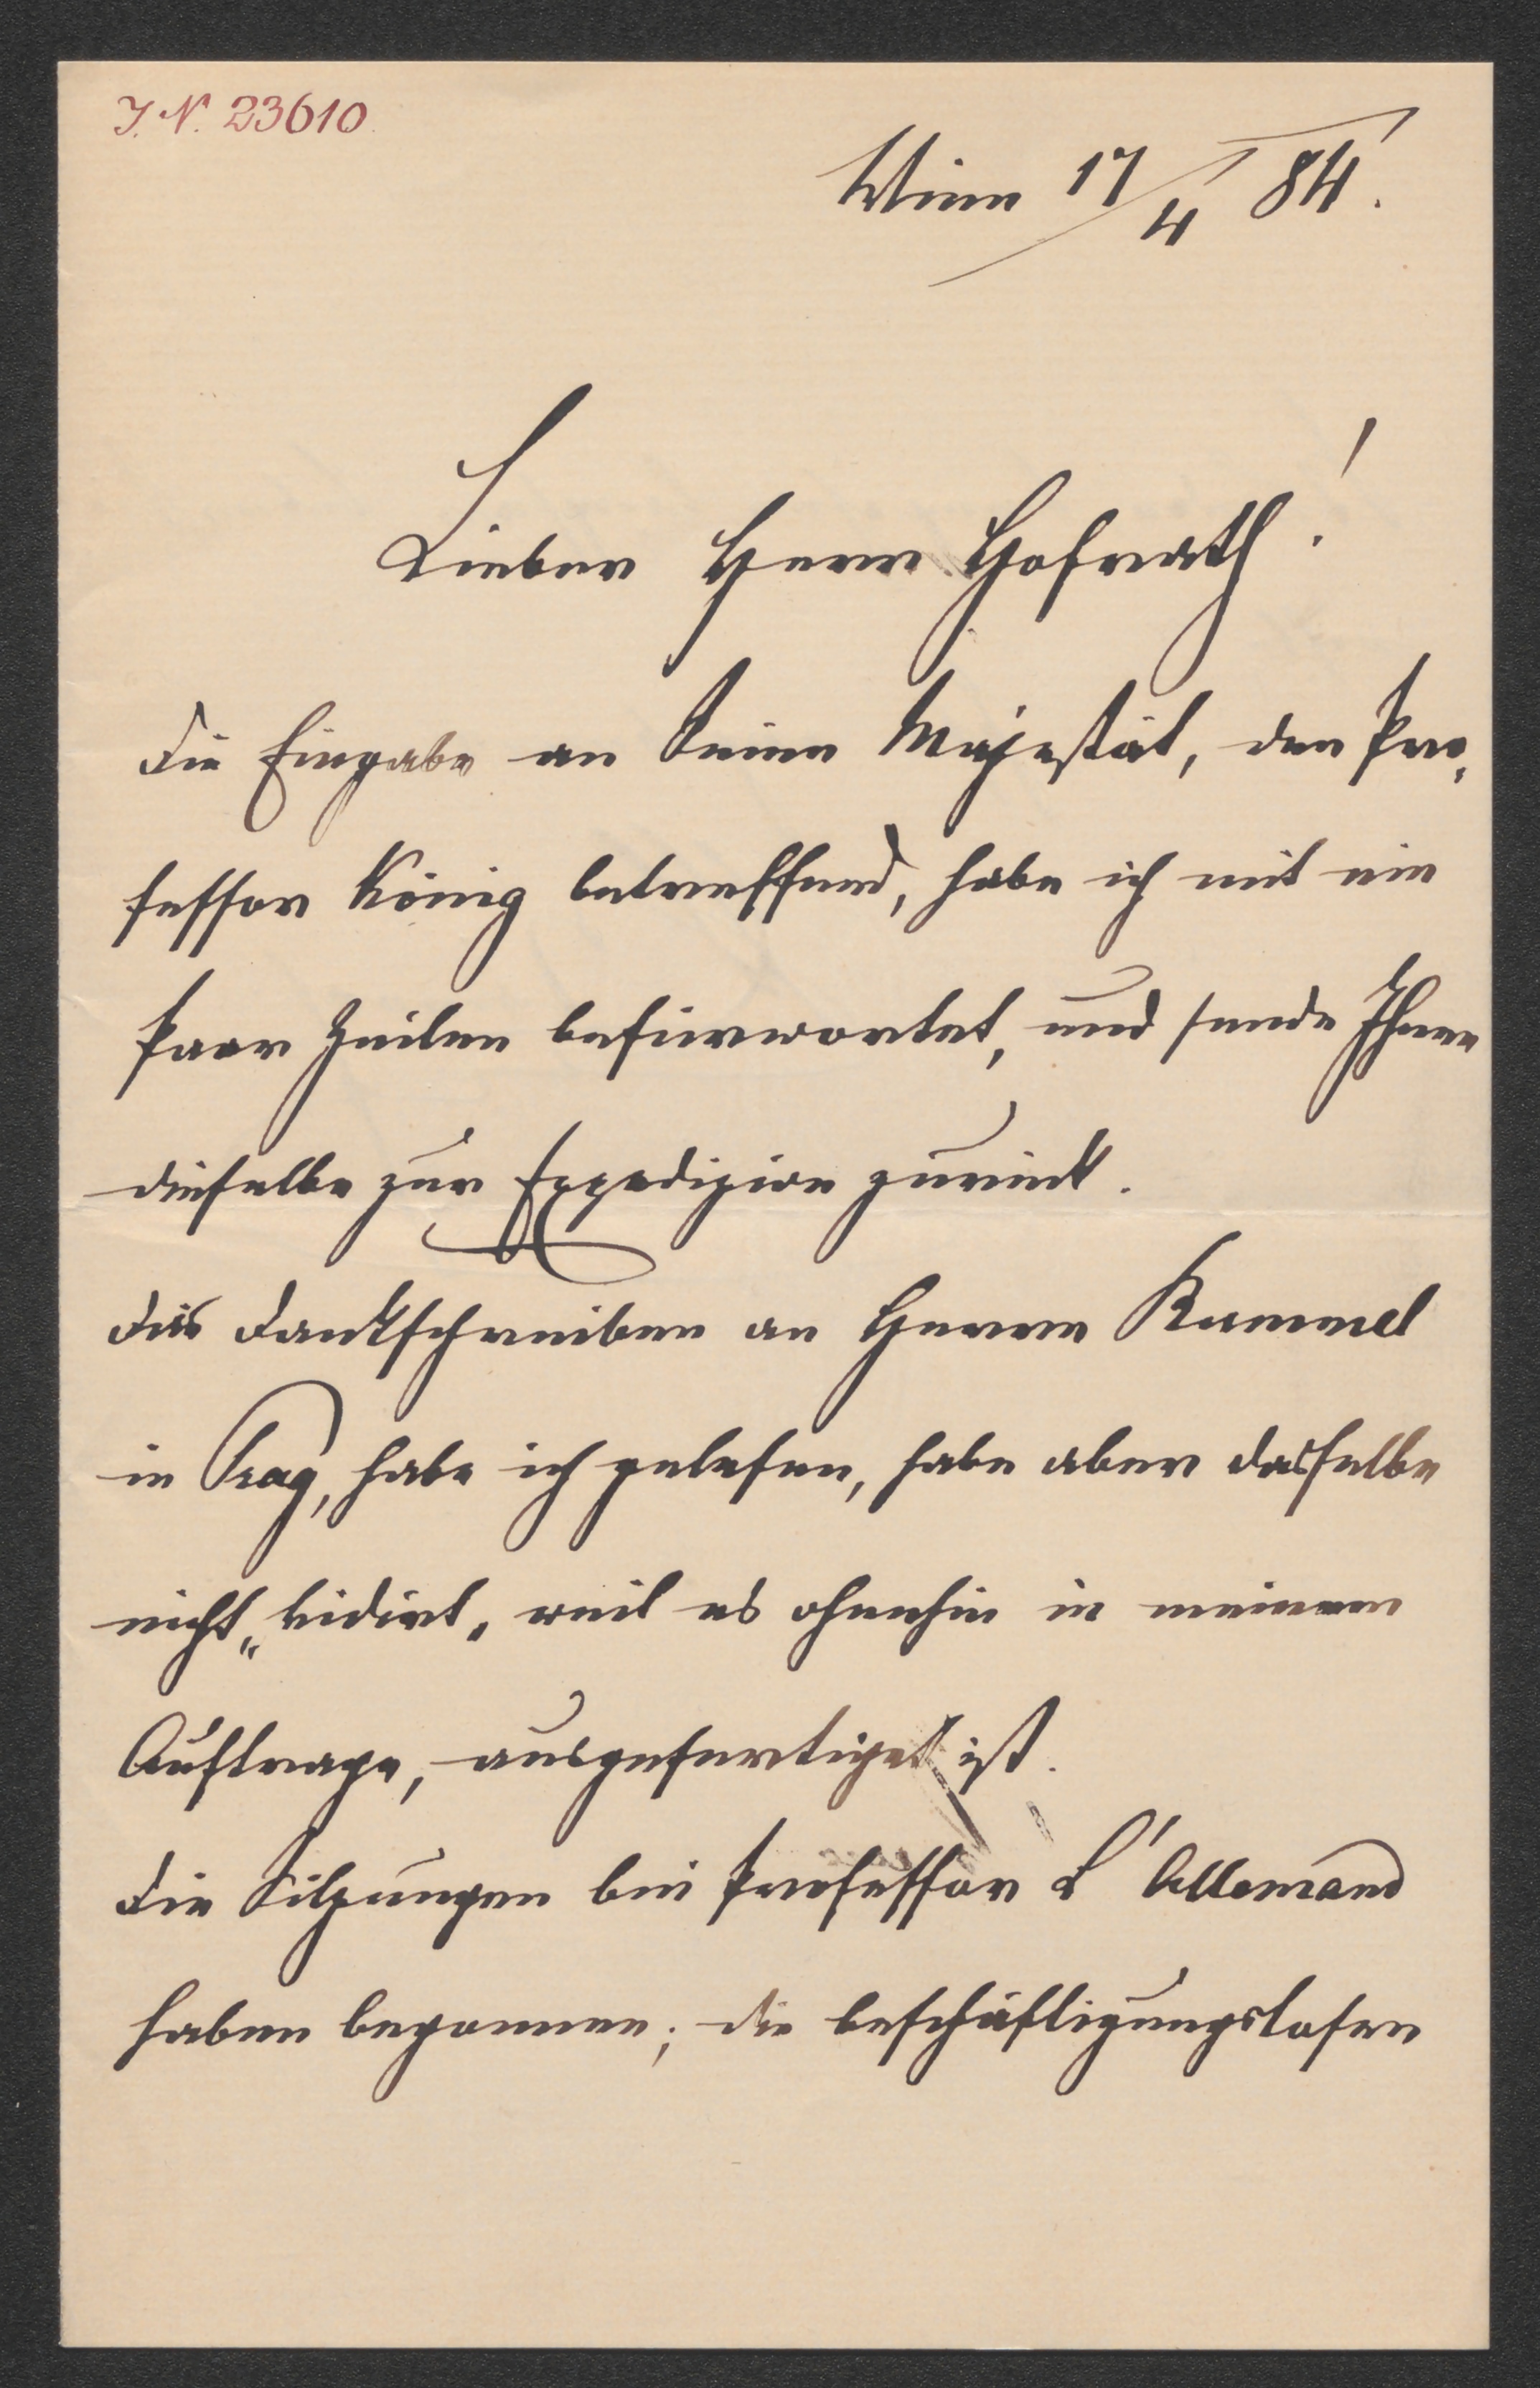 J. N. 23610
Wien 17/4 84.
Lieber Herr Hofrath!
Die Eingabe an Seine Majestät, den Pro¬
fessor König betreffend, habe ich mit ein
Paar Zeilen befürwortet, und sende Ihnen
dieselbe zur Expedizion zurück.
Das Dankschreiben an Herrn Kummel
in Prag, habe ich gelesen, habe aber dasselbe
nicht „vidirt", weil es ohnehin in meinem
Auftrage, ausgefertiget ist.
Die Sitzungen bei Professor L'Allemand
haben begonnen; die beschäftigungslosen